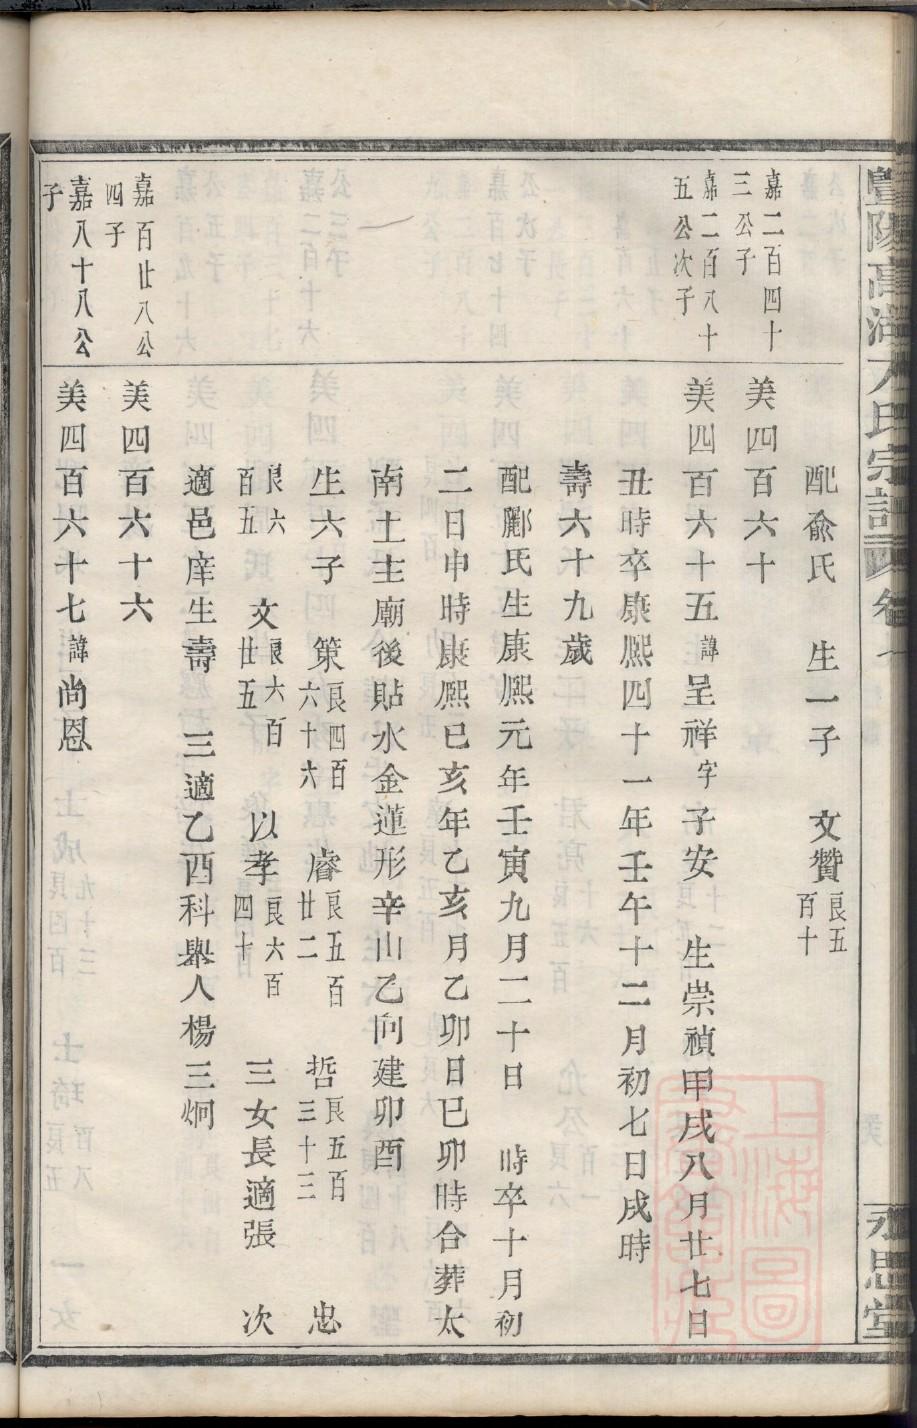 暨陽高湖氏宗譜卷
永思堂
配俞氏 生一子 文贊良五百十
嘉二百四十三公子
美四百六十
嘉二百八十五公次子
美四百六十五諱呈祥字子安 生崇禎甲戌八月廿七日
丑時卒康熙四十一年壬午十二月初七日戌時
壽六十九歲
配酈氏生康熙元年壬寅九月二十日 時卒十月初
二日申時康熙己亥年乙亥月乙卯日己卯時合葬太
南土主廟後貼水金蓮形辛山乙向建卯酉
生六子 策良四百六十六 睿良五百廿二 哲良五百三十三 忠
良六百五 文良六百廿五 以孝良六百四十 三女長適張 次
適邑庠生壽 三適乙酉科舉人楊三炯
嘉百廿八公四子
美四百六十六
嘉八十八公子
美四百六十七諱尚恩
上海圖